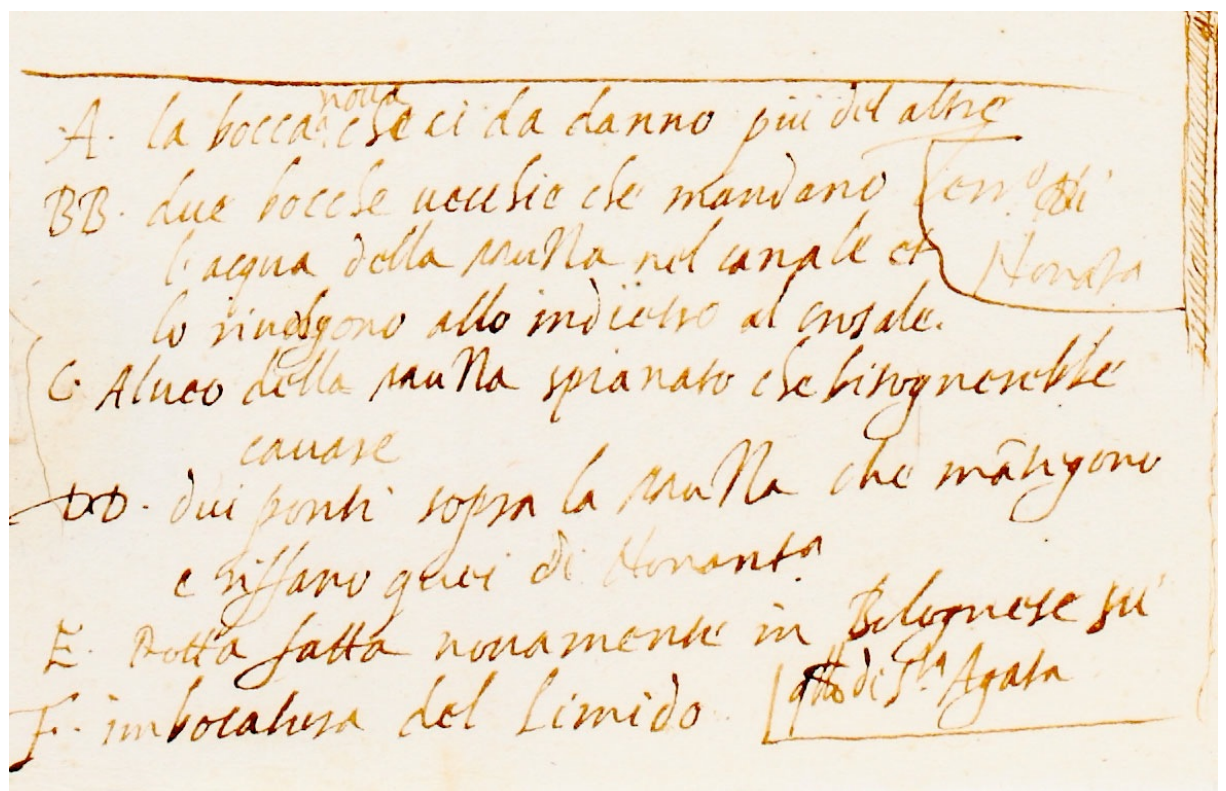 A. la bocca noua che ci da danno piu del altre
BB. due bocche uecchie che mandano
l'acqua della Muzza nel canale et
lo riuolgono allo indietro al
C. Alueo della Muzza spianato che bisognerebbe
cauare
DD. dui ponti sopra la Muzza che mãtengono
e riffano quei di Nonant.a
E. Rotta fatta nouamente in Bolognese su
quello di S.ta Agata
F. imbocatura del Limido